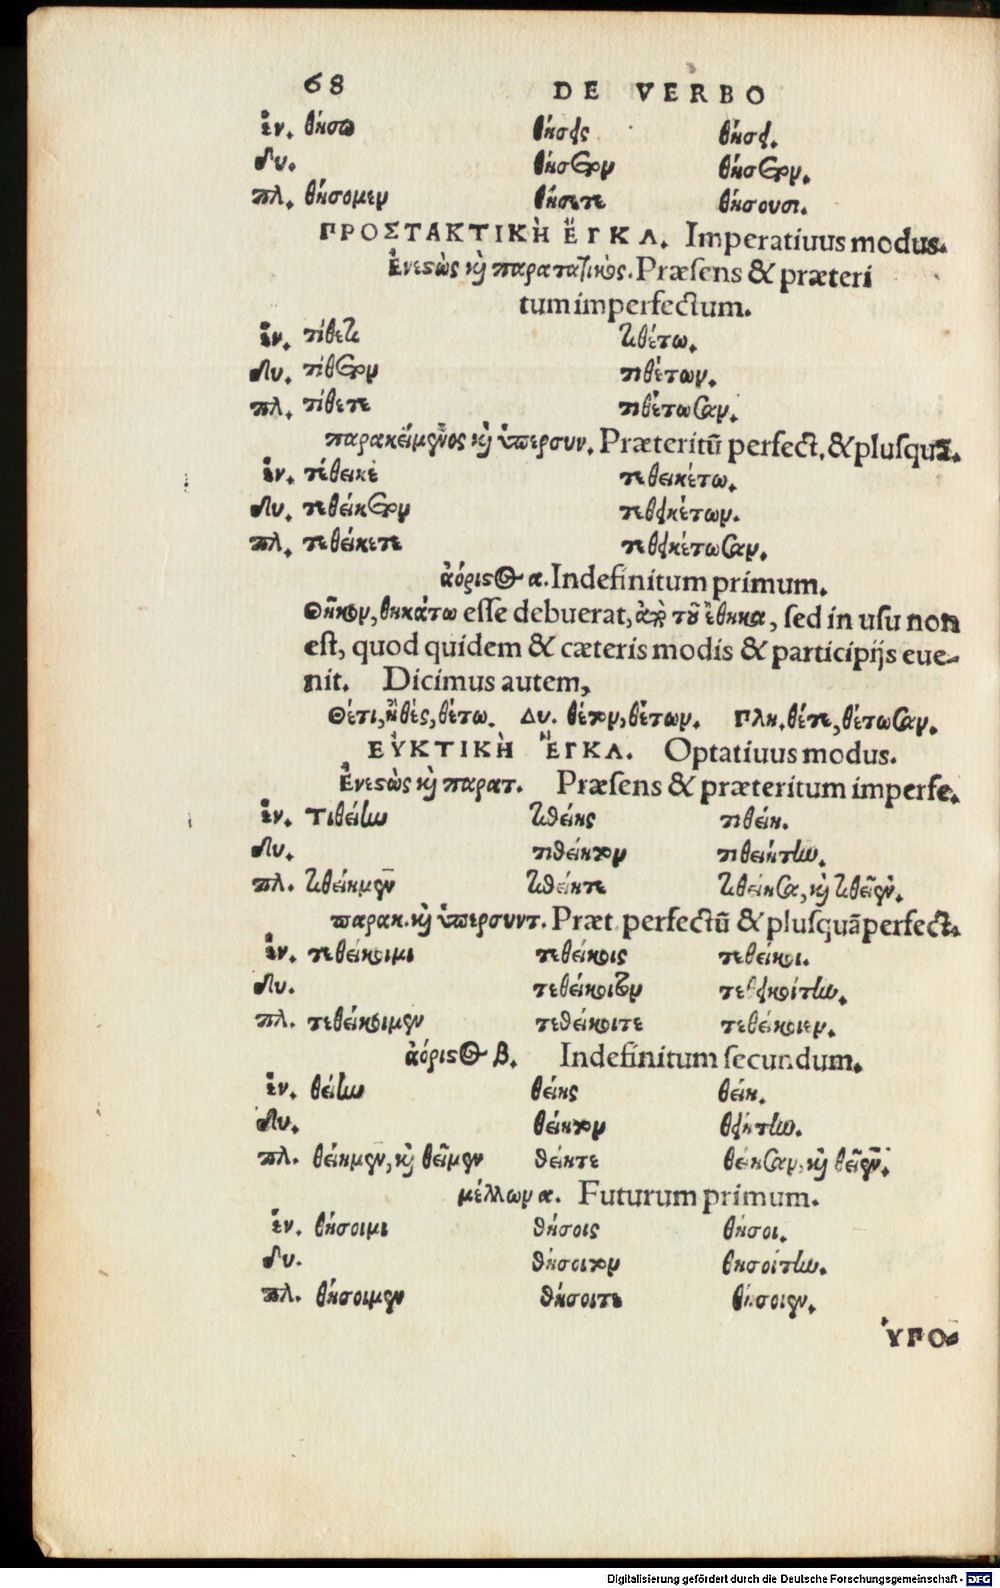 68 DE VERBO
ἑν. θήσω θήσεις θήσει.
δυ. θήσετον θήσετον.
πλ. θήσομεν θήσετε θήσουσι.
ΠΡΟΣΤΑΚΤΙΚῊ ἜΓΚΛ. Imperatiuus modus.
Ἐνεστὼς καὶ παρατατικὸς. Præsens & præteri
tum imperfectum.
ἑν. τίθετι τιθέτω.
δυ. τίθετον τιθέτων.
πλ. τίθετε τιθέτωσαν.
παρακείμενος καὶ ὑπερσυν. Præteritũ perfect. & plusquã.
ἑν. τέθεικε τεθεικέτω.
δυ. τεθείκετον τεθεικέτων.
πλ. τεθείκετε τεθεικέτωσαν.
ἀόριστος α. Indefinitum primum.
Θῆκον, θηκάτω esse debuerat, ἀπὸ τοῦ ἔθηκα, sed in usu non
est, quod quidem & cæteris modis & participijs eue-
nit. Dicimus autem,
Θέτι, ἢ θὲς, θέτω. Δυ. θέτον, θέτων. Πλη. θέτε, θέτωσαν.
ΕΥΚΤΙΚῊ ἜΓΚΛ. Optatiuus modus.
Ἐνεστὼς καὶ παρατ. Præsens & præteritum imperfe.
ἑν. τιθείην τιθείης τιθείη.
δυ. τιθείητον τιθειήτην.
πλ. τιθείημεν τιθείητε τιθείησα, καὶ τιθεῖεν.
παρακ. καὶ ὑπερσυντ. Præt. perfectũ & plusquãperfect.
ἑν. τεθείκοιμι τεθείκοις τεθείκοι.
δυ. τεθείκοιτον τεθεικοίτην.
πλ. τεθείκοιμεν τεθείκοιτε τεθείκοιεν.
ἀόριστος β. Indefinitum secundum.
ἑν. θείην θείης θείη.
δυ. θείητον θειήτην.
πλ. θείημεν, καὶ θεῖμεν θείητε θείησαν, καὶ θεῖεν.
μέλλων α. Futurum primum.
ἑν. θήσοιμι θήσοις θήσοι.
δυ. θήσοιτον θησοίτην.
πλ. θήσοιμεν θήσοιτε θήσοιεν.
ὙΠΟ-
Digitalisierung gefördert durch die Deutsche Forschungsgemeinschaft - DFG